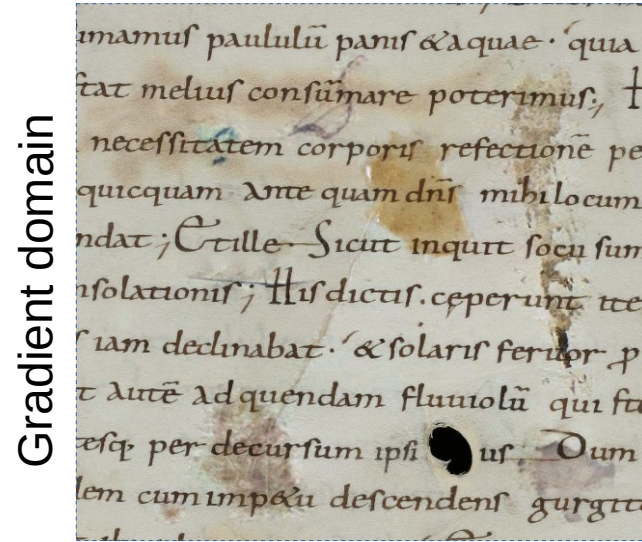 Gradient domain
umamuſ paululū paniſ &aquae · quia
ſtat meliuſ conſūmare poterimuſ;,
neceſſitatem corporiſ refectionē pe
quicquam · Ante quam dn̄ſ mihi locum
ndat ; Et ille · Sicut inquit ſocii ſum
nſolationiſ ; Hiſ dictiſ . cęperunt ite
ſ iam declinabat · & ſolariſ feruor ꝑ
t autē ad quendam fluuiolū qui ft
eſq; per decurſum ipſi uſ Dum
lem cum imp&u deſcendenſ gurgit